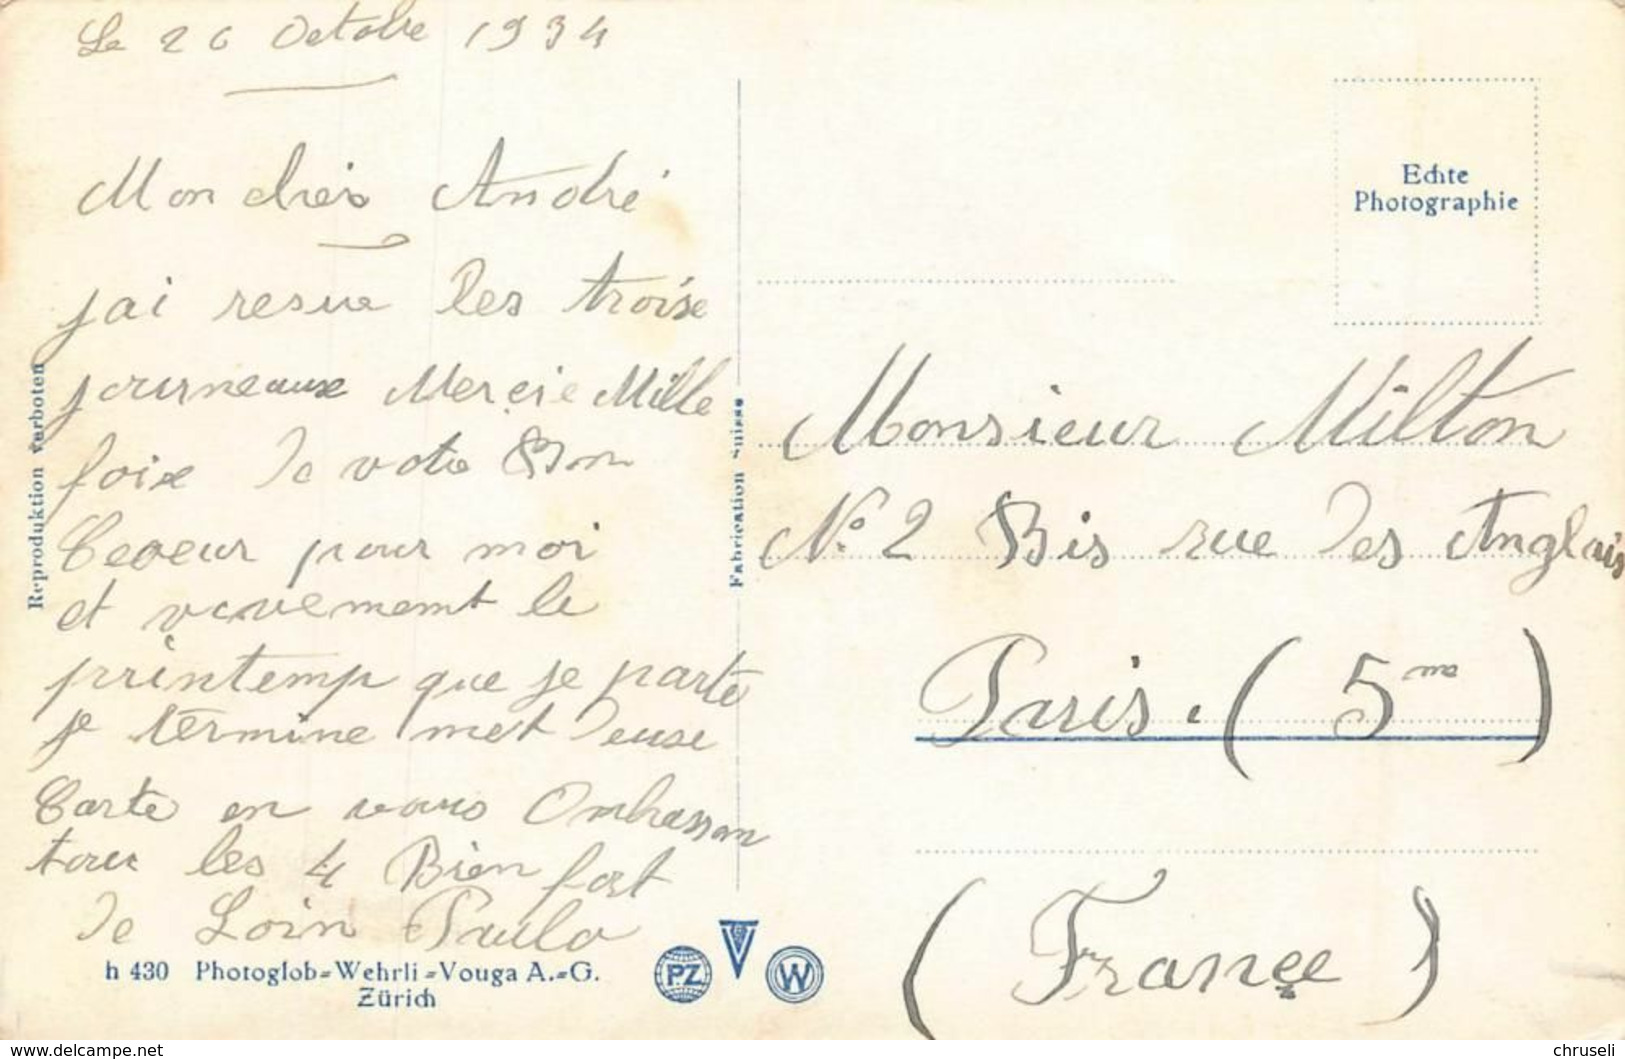 Le 26 Octobre 1934
Mon chér André
jai resue les troise
journeaux Mercie Mille
foix de votre Bon
Ceoeur pour moi
et vivemement le
printemp que je parte
je términe met deuse
Carte en vous Ombrassan
tous les 4 Bien fort
de Loin Paulo
h 430 Photoglob-Wehrli-Vouga A.-G.
Zürich
Reproduktion verboten
Fabrication suisse
PZ
V
W
Echte
Photographie
Monsieur Milton
No. 2 Bis rue des Anglais
Paris. (5me)
(France)
www.delcampe.net
chruseli